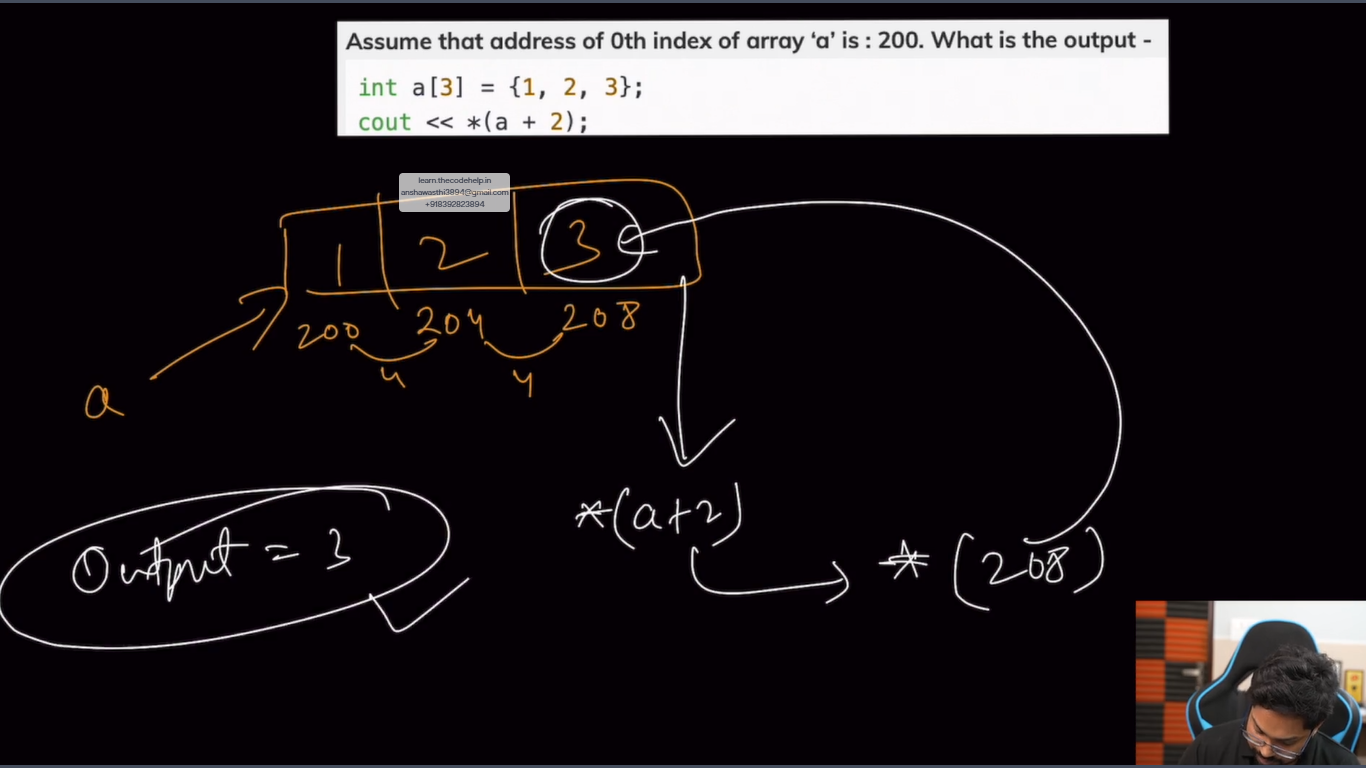 Assume that address of 0th index of array ‘a’ is : 200. What is the output -
int a[3] = {1, 2, 3};
cout << *(a + 2);
learn.thecodehelp.in
anshawasthi3894@gmail.com
+918392823894
1 2 3
200 204 208
4 4
a
*(a+2)
Output = 3
*(208)